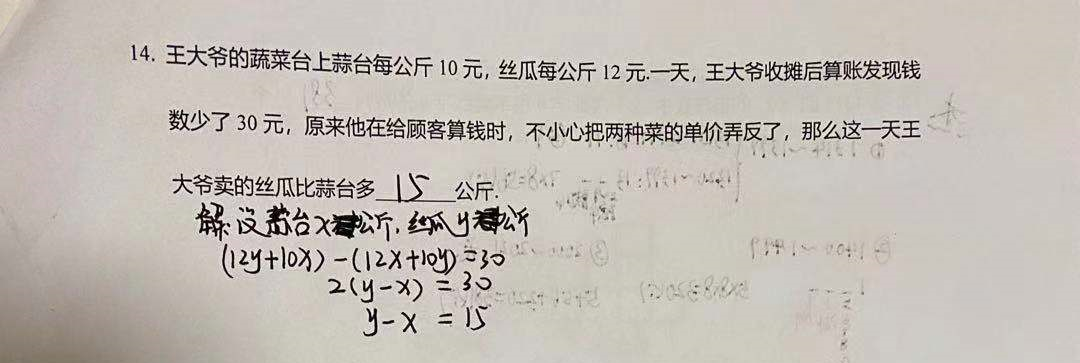 14. 王大爷的蔬菜台上蒜台每公斤 10 元, 丝瓜每公斤 12 元.一天, 王大爷收摊后算账发现钱
数少了 30 元, 原来他在给顾客算钱时, 不小心把两种菜的单价弄反了, 那么这一天王
大爷卖的丝瓜比蒜台多 15 公斤.
解:设蒜台x公斤,丝瓜y公斤
(12y+10x)-(12x+10y)=30
2(y-x)=30
y-x=15